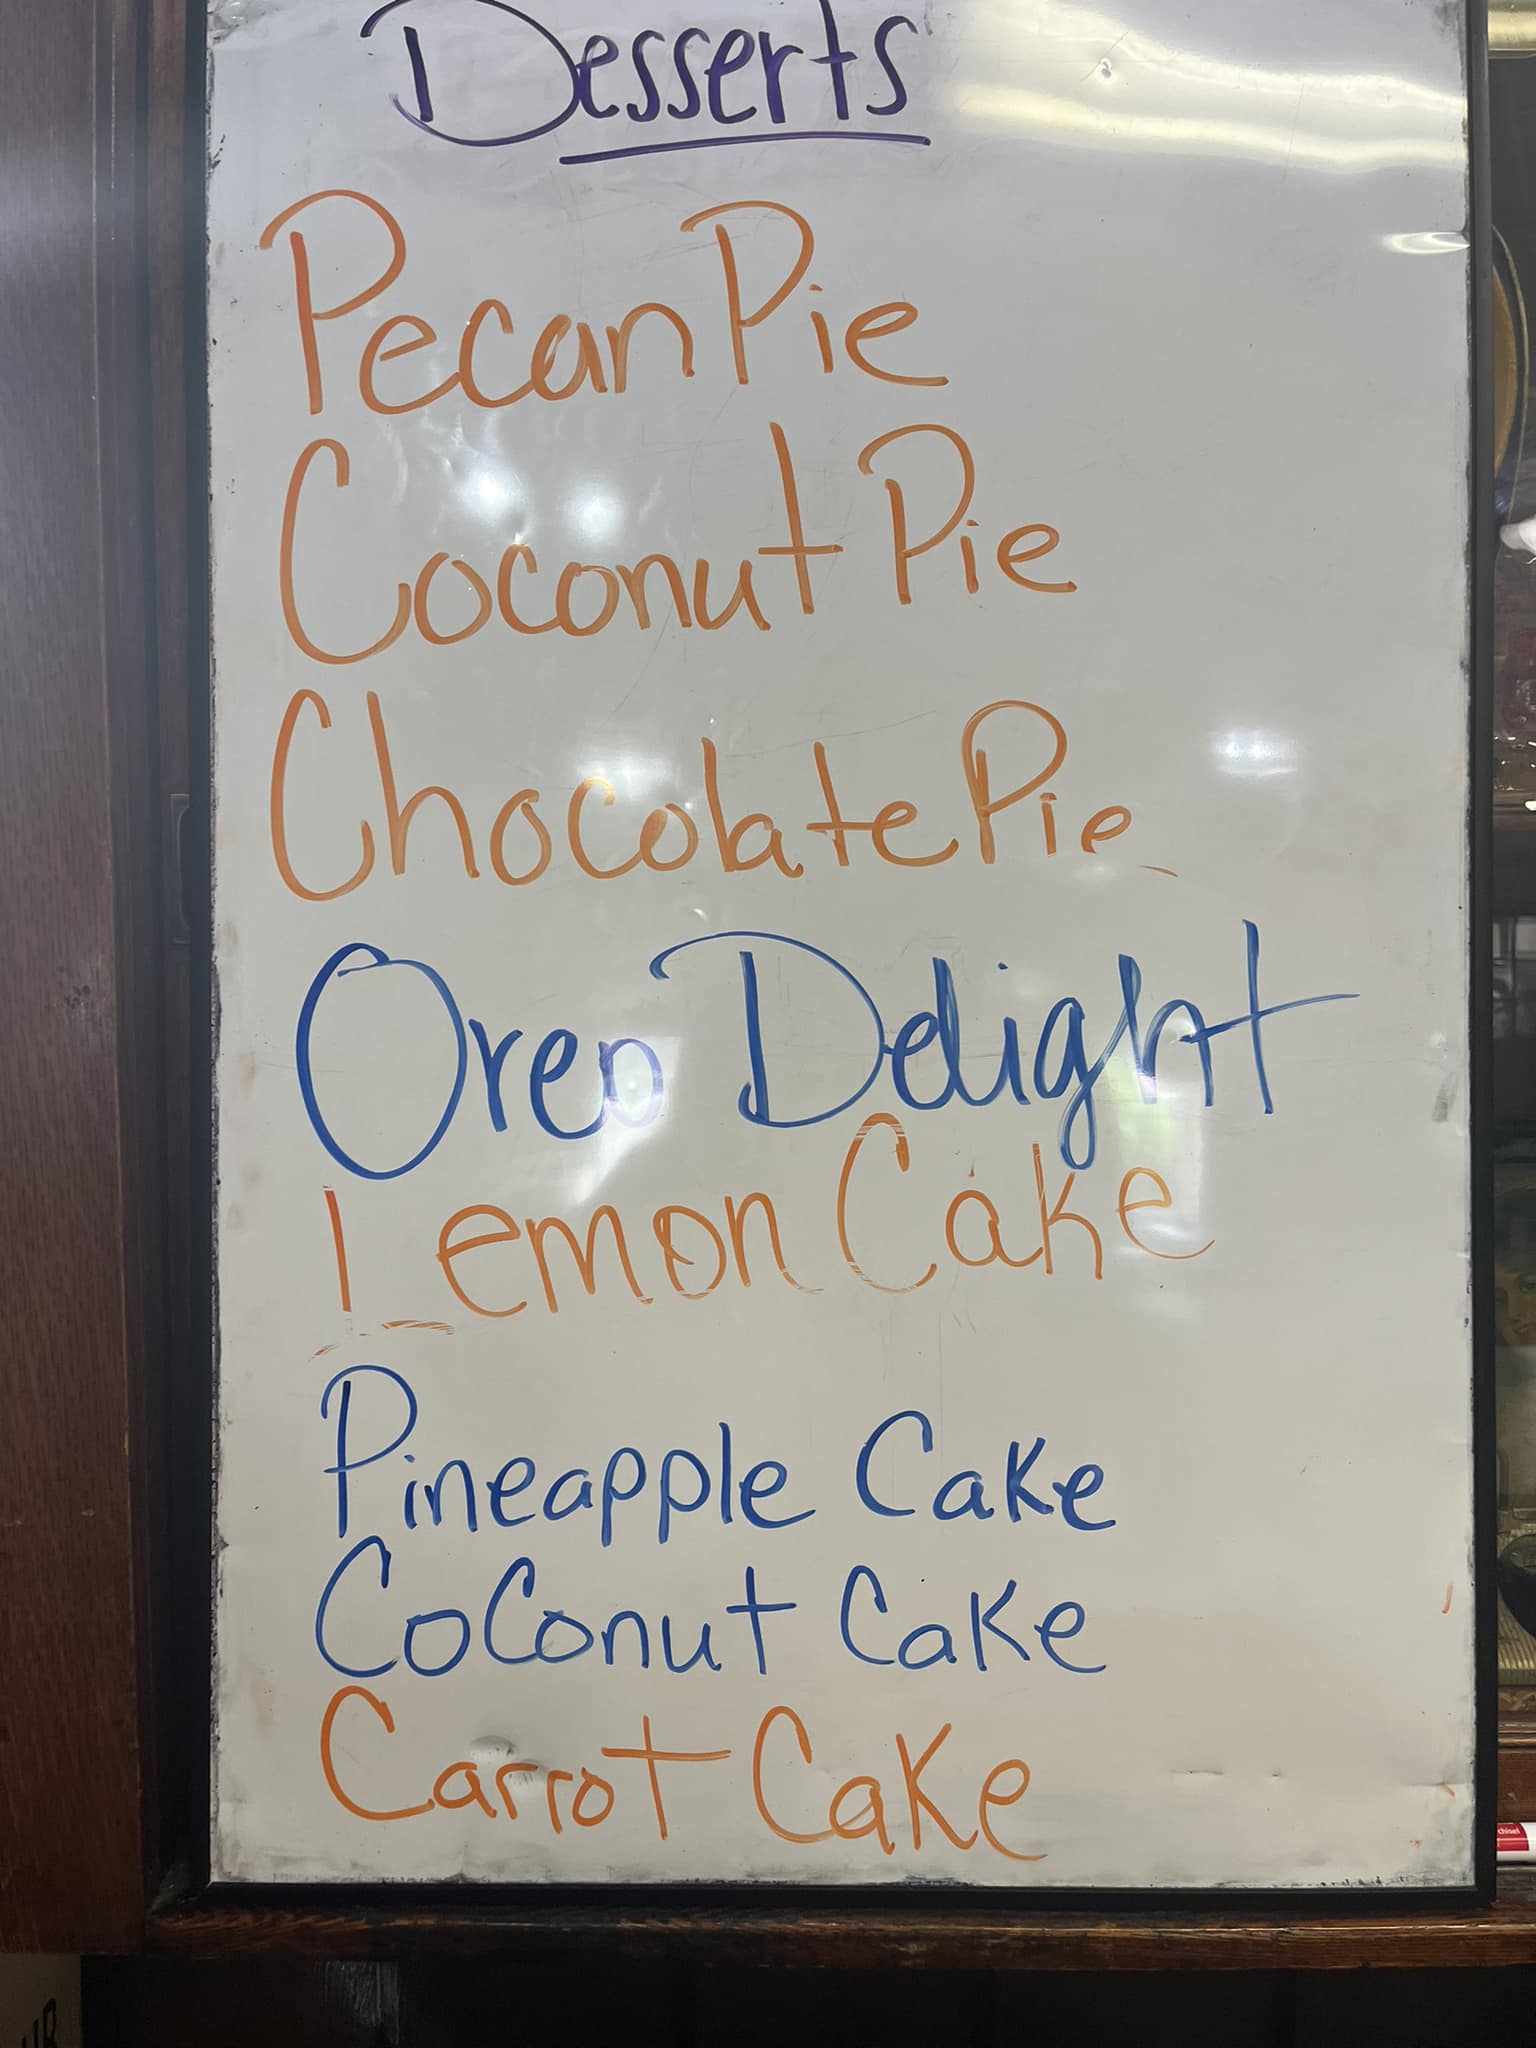 Desserts
Pecan Pie
Coconut Pie
Chocolate Pie
Oreo Delight
Lemon Cake
Pineapple Cake
Coconut Cake
Carrot Cake
chisel